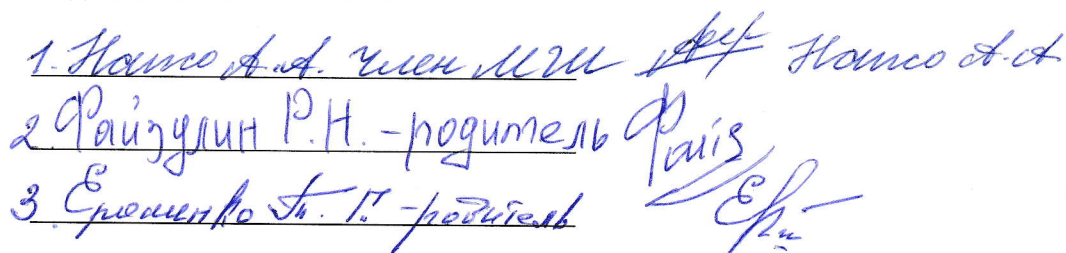 1. Натхо А.А. член МГШ Натхо А.А
2. Файзулин Р.Н. - родитель Файз
3 Еременко Т. Г. - родитель